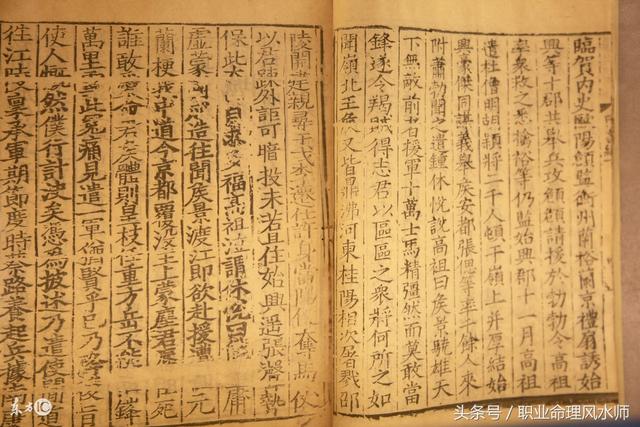 臨賀内史歐陽頠監衡州蘭裕蘭京禮扇誘始
興等十郡共舉兵攻頠頠請援於勃勃令高祖
率衆救之悉擒裕等仍監始興郡十一月高祖
遣杜僧明胡穎將二千人頓于嶺上并厚結始
興豪傑同謀義舉矦安都張偲等率千餘人來
附蕭勃聞之遣鍾休恱說高祖曰矦景驍雄天
下無敵前者援軍十萬士馬精彊然而莫敢當
鋒遂令羯賊得志君以區區之衆將何所之如
聞嶺北王矦又皆鼎沸河東桂陽相次屠戮邵
陵開建親尋干戈李遷仕許身當陽便奪馬仗
以君疎外詎可暗投未若且住始興遥張聲勢
保此太 福高祖泣謂休恱曰 庸
虚蒙 造往聞矦景渡江即欲赴援遭 元
蘭梗 中道今京都覆没主上蒙塵君 死
誰敢 命君 體則皇枝任重方岳不能 鋒
萬里 此寃痛見遣一軍猶賢乎已乃
使人慨然僕行計决矣憑為披述乃遣使間道
往江陵稟承軍期節度時蔡路養起兵據南康
东方IC
头条号／职业命理风水师